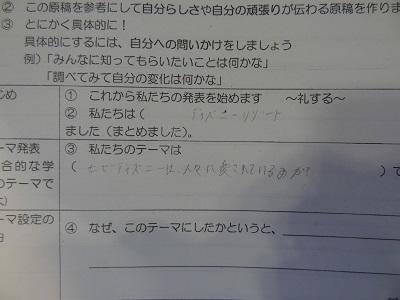 ② この原稿を参考にして自分らしさや自分の頑張りが伝わる原稿を作りま
③ とにかく具体的に！
具体的にするには、自分への問いかけをしましょう
例）「みんなに知ってもらいたいことは何かな」
「調べてみて自分の変化は何かな」
じめ
① これから私たちの発表を始めます　～礼する～
② 私たちは（ ディズニーリゾート
ました（まとめました）。
ーマ発表
③ 私たちのテーマは
合的な学
（ なぜディズニーは、人々に愛されているのか? ）て
のテーマで
ーマ設定の
④ なぜ、このテーマにしたかというと、